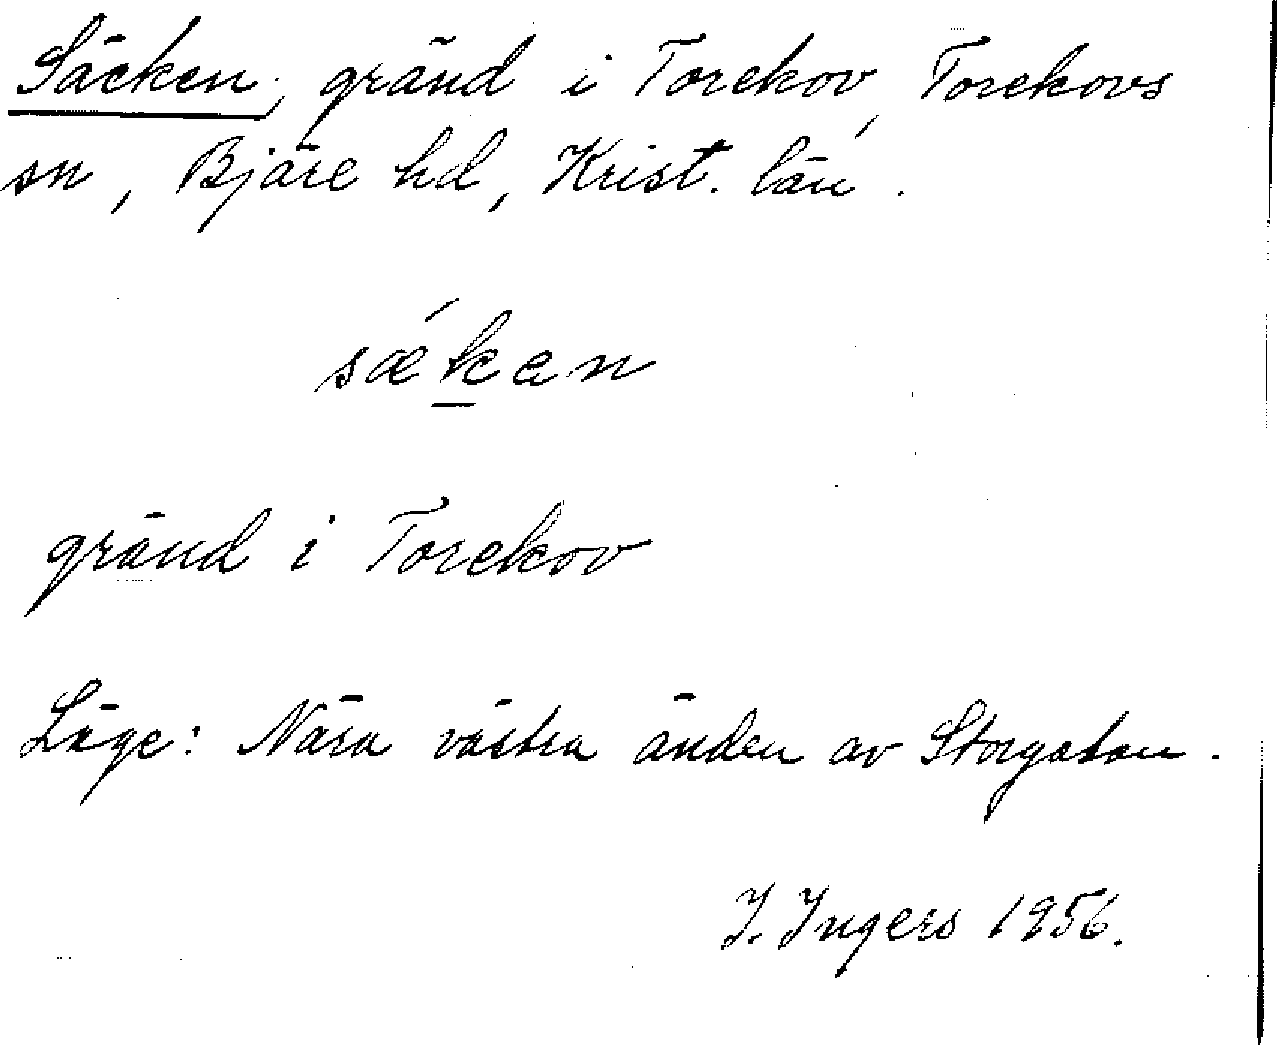 Säcken, gränd i Torekov, Torekovs
sn, Bjäre hd, Krist. län.
sǽk̲en
gränd i Torekov
Läge: Nära västra änden av Storgatan.
I. Ingers 1956.